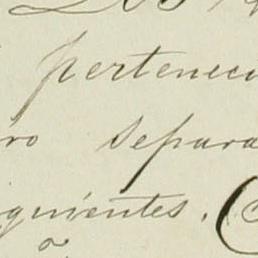 Los
perteneci
ro separa
guientes.